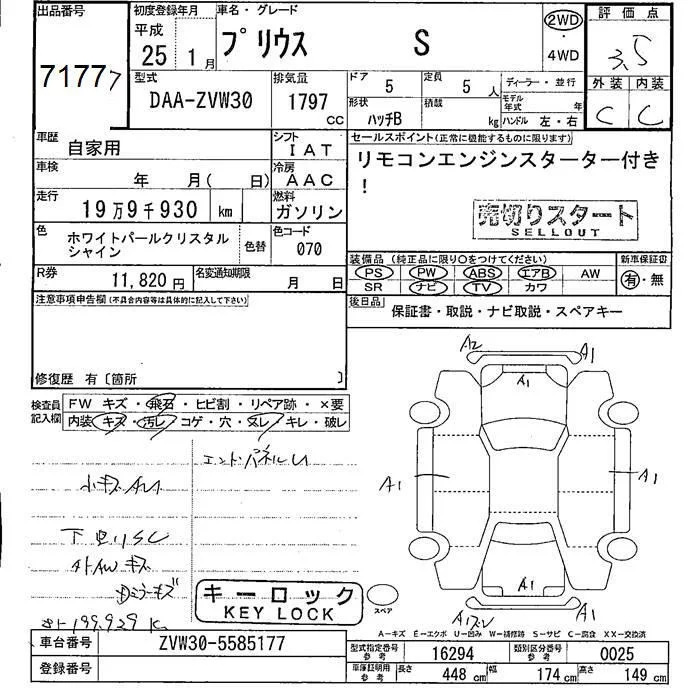 出品番号
71777
初度登録年月
平成
25 1月
車名・グレード
プリウス S
2WD
・
4WD
評価点
3.5
外装 内装
C C
型式
DAA-ZVW30
排気量
1797
CC
ドア
5
定員
5人
形状
ハッチB
積載
kg
ディーラー・並行
モデル年式 年
ハンドル 左・右
車歴
自家用
シフト
IAT
車検
年 月( 日)
冷房
AAC
走行
19万9千930 km
燃料
ガソリン
色
ホワイトパールクリスタル
シャイン
色替
色コード
070
R券
11,820円
名変通知期限
月 日
セールスポイント(正常に機能するものに限ります)
リモコンエンジンスターター付き
!
売切りスタート
SELLOUT
装備品(純正品に限り○をつけてください)
PS PW ABS エアB AW
SR ナビ TV カワ
新車保証書
有・無
後日品
保証書・取説・ナビ取説・スペアキー
注意事項申告欄(不具合内容等は具体的に記入して下さい)
修復歴 有〔箇所 〕
検査員
記入欄
FW キズ・飛石・ヒビ割・リペア跡・×要
内装 キズ・汚レ・コゲ・穴・スレ・キレ・破レ
エンドパネルU
小キズAU
下回リSC
4ケAWキズ
Dミラーキズ
199,929 K
キーロック
KEY LOCK
スペア
A2 A1
A1
A1 A1
A1
A1スレ A1
A－キズ E－エクボ U－凹み W－補修跡 S－サビ C－腐食 XX－交換済
車台番号
ZVW30-5585177
登録番号
型式指定番号
参考
16294
類別区分番号
参考
0025
車庫証明用
参考
長さ 448 cm 幅 174 cm 高さ 149 cm